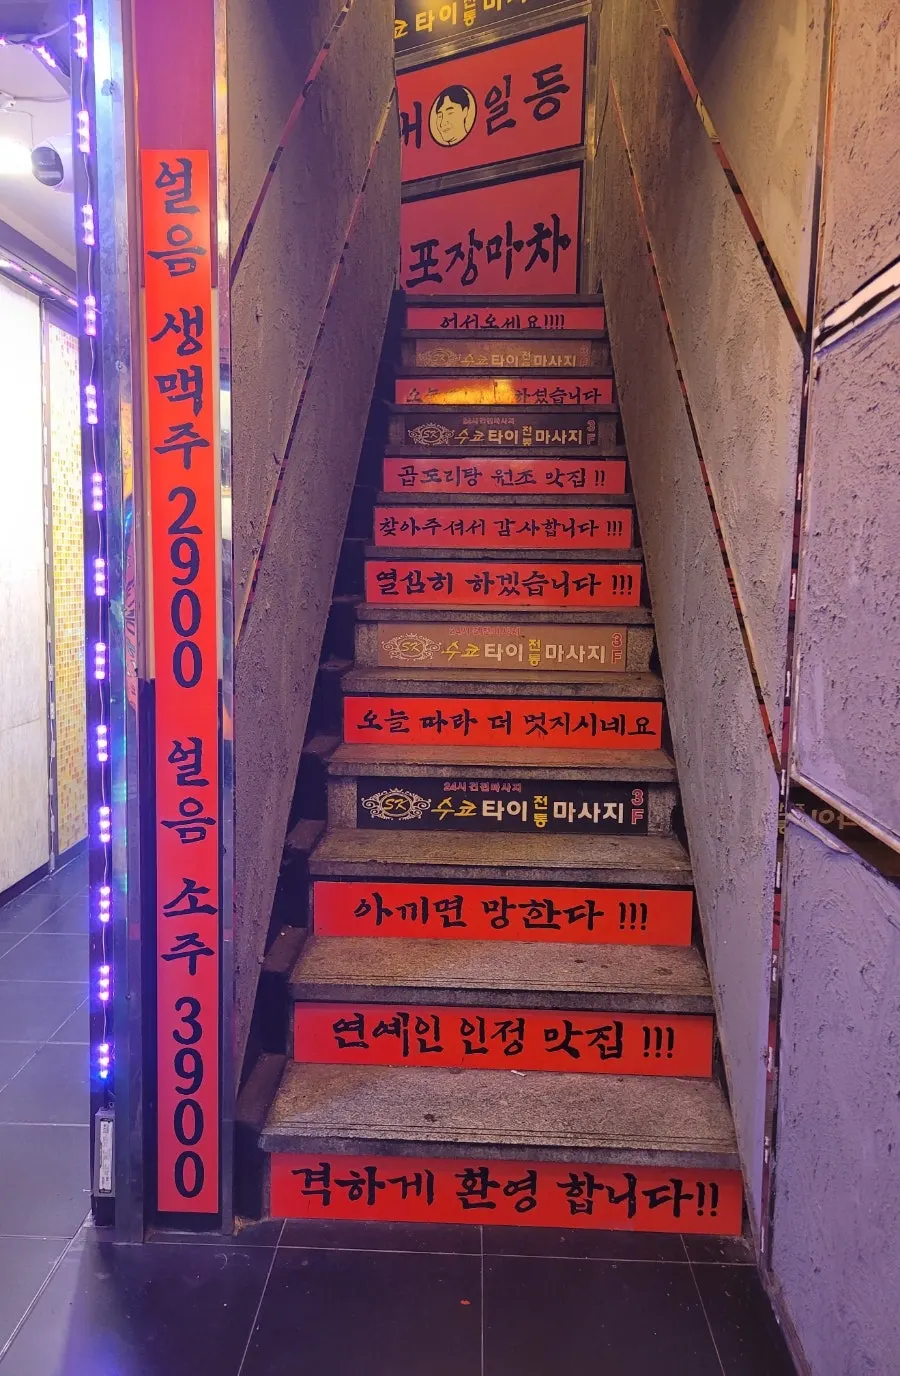 쿄 타이 전통 마사
일등
포장마차
어서오세요!!!!
수쿄 타이 전통 마사지 3F
오늘 하셨습니다
24시 건전마사지
SK 수쿄 타이 전통 마사지 3F
곱도리탕 원조 맛집 !!
찾아주셔서 감사합니다 !!!
열심히 하겠습니다 !!!
24시 건전마사지
SK 수쿄 타이 전통 마사지 3F
오늘 따라 더 멋지시네요
24시 건전마사지
SK 수쿄 타이 전통 마사지 3F
아끼면 망한다 !!!
연예인 인정 맛집 !!!
격하게 환영 합니다!!
얼음 생맥주 2900 얼음 소주 3900